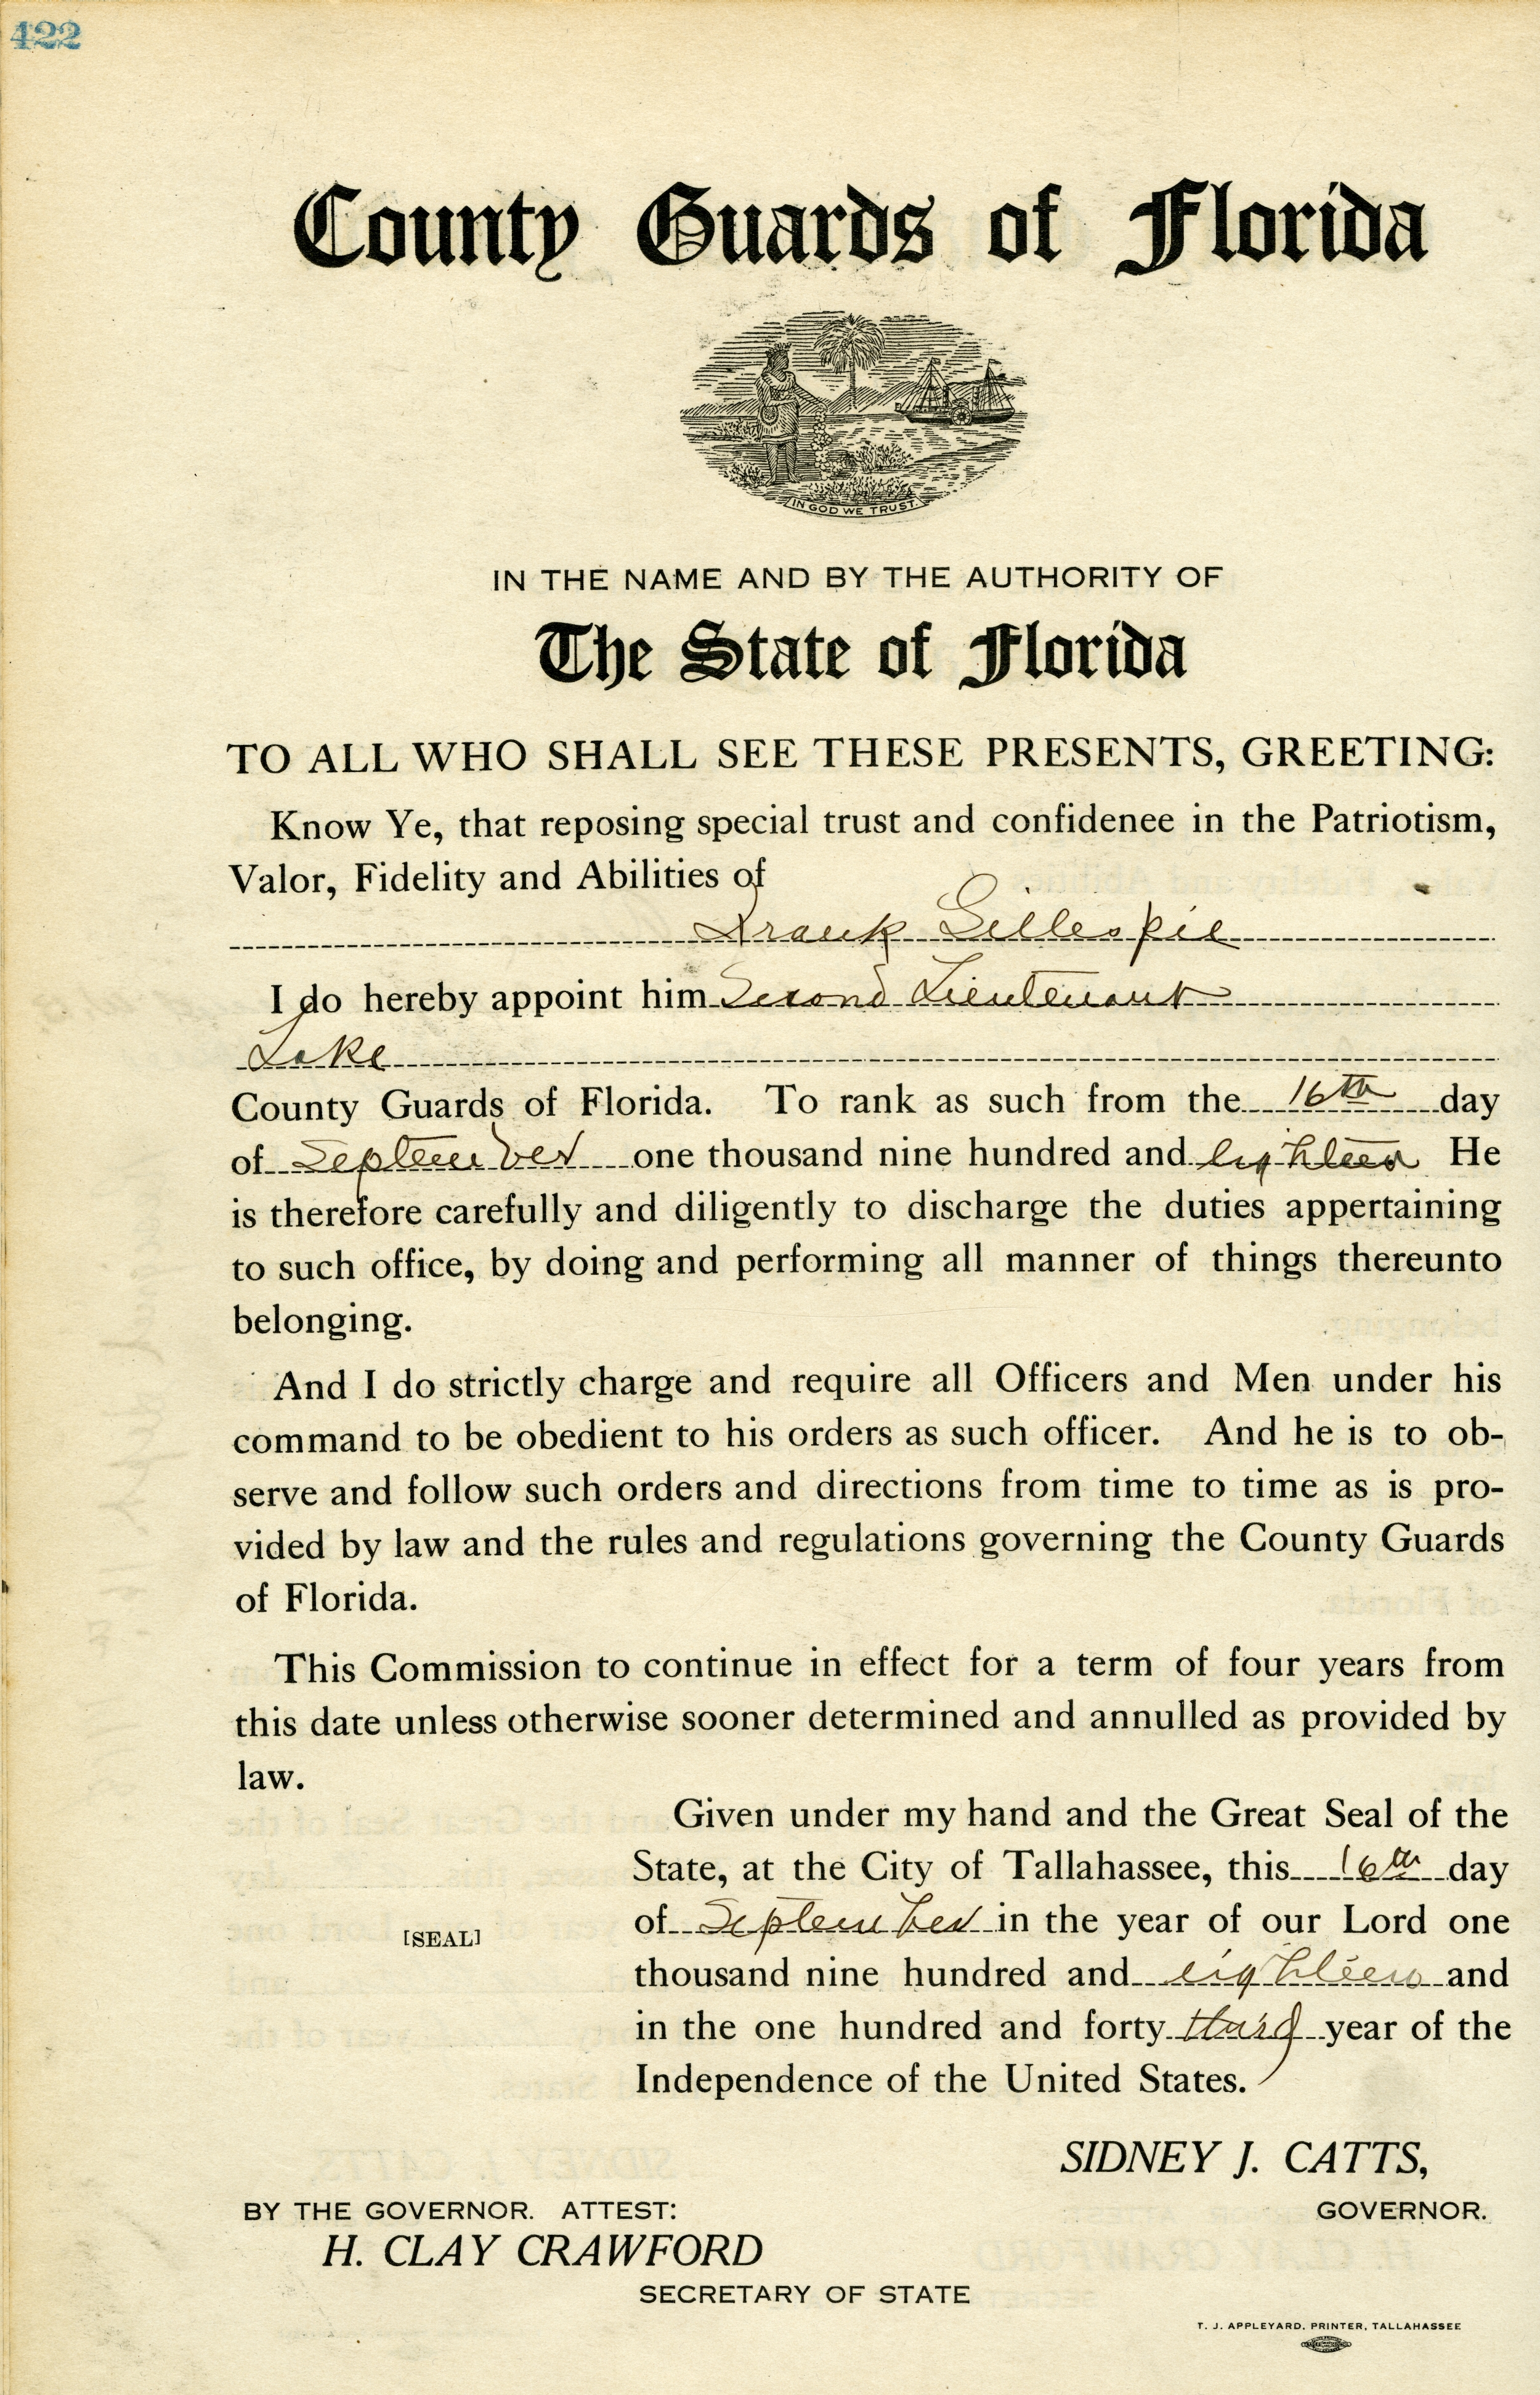 422
County Guards of Florida
IN GOD WE TRUST.
IN THE NAME AND BY THE AUTHORITY OF
The State of Florida
TO ALL WHO SHALL SEE THESE PRESENTS, GREETING:
Know Ye, that reposing special trust and confidenee in the Patriotism,
Valor, Fidelity and Abilities of
Frank Gillespie
I do hereby appoint him Second Lieutenant
Lake
County Guards of Florida. To rank as such from the 16th day
of September one thousand nine hundred and eighteen He
is therefore carefully and diligently to discharge the duties appertaining
to such office, by doing and performing all manner of things thereunto
belonging.
And I do strictly charge and require all Officers and Men under his
command to be obedient to his orders as such officer. And he is to ob-
serve and follow such orders and directions from time to time as is pro-
vided by law and the rules and regulations governing the County Guards
of Florida.
This Commission to continue in effect for a term of four years from
this date unless otherwise sooner determined and annulled as provided by
law.
Given under my hand and the Great Seal of the
State, at the City of Tallahassee, this 16th day
of September in the year of our Lord one
[SEAL]
thousand nine hundred and eighteen and
in the one hundred and forty third year of the
Independence of the United States.
SIDNEY J. CATTS,
BY THE GOVERNOR. ATTEST: GOVERNOR.
H. CLAY CRAWFORD
SECRETARY OF STATE
T. J. APPLEYARD, PRINTER, TALLAHASSEE